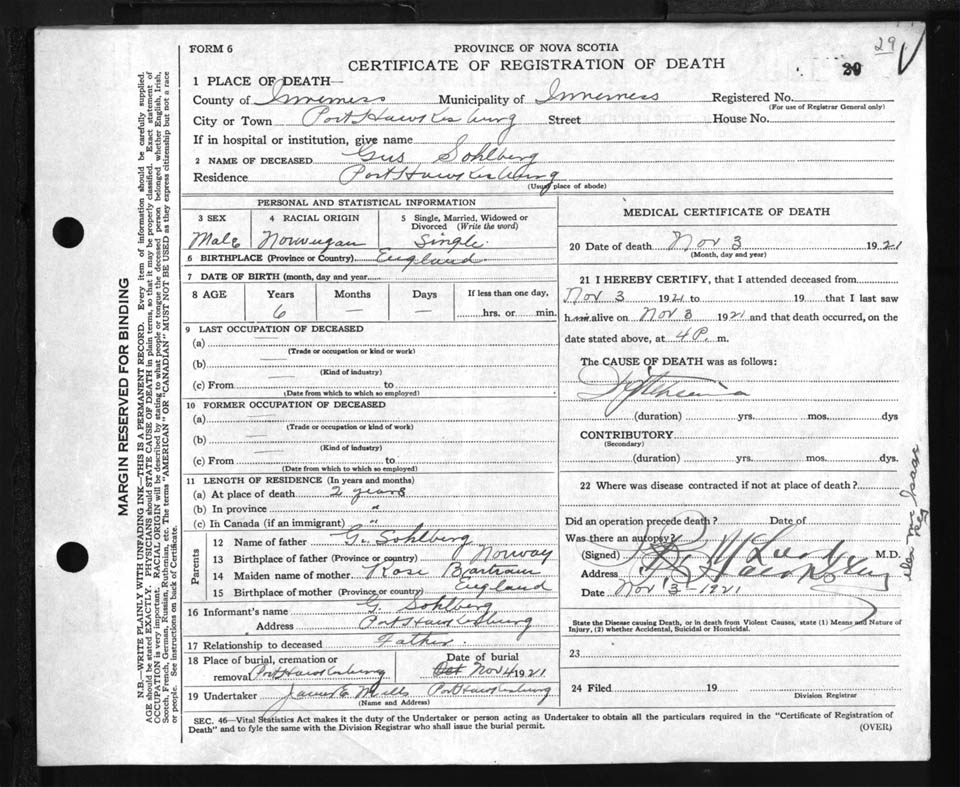 29
FORM 6
PROVINCE OF NOVA SCOTIA
CERTIFICATE OF REGISTRATION OF DEATH
29
1 PLACE OF DEATH—
County of Inverness Municipality of Inverness Registered No.
(For use of Registrar General only)
City or Town Port Hawkesburg Street House No.
If in hospital or institution, give name
2 NAME OF DECEASED Gus Sohlberg
Residence Port Hawkesburg
(Usual place of abode)
PERSONAL AND STATISTICAL INFORMATION
3 SEX 4 RACIAL ORIGIN 5 Single, Married, Widowed or Divorced (Write the word)
Male Norwegan Single.
6 BIRTHPLACE (Province or Country) England.
7 DATE OF BIRTH (month, day and year)
8 AGE Years Months Days If less than one day,
6 — — hrs. or min.
9 LAST OCCUPATION OF DECEASED
(a)
(Trade or occupation or kind or work)
(b)
(Kind of industry)
(c) From to
(Date from which to which so employed)
10 FORMER OCCUPATION OF DECEASED
(a)
(Trade or occupation or kind of work)
(b)
(Kind of industry)
(c) From to
(Date from which to which so employed)
11 LENGTH OF RESIDENCE (In years and months)
(a) At place of death 2 years
(b) In province "
(c) In Canada (if an immigrant) "
Parents
12 Name of father G. Sohlberg
13 Birthplace of father (Province or country) Norway
14 Maiden name of mother Rose Bartram
15 Birthplace of mother (Province or country) England
16 Informant's name G. Sohlberg
Address Port Hawkesburg
17 Relationship to deceased Father.
18 Place of burial, cremation or removal Port Hawkesburg Date of burial Oct Nov 4 1921
19 Undertaker James E. Mills Port Hawkesburg
(Name and Address)
MEDICAL CERTIFICATE OF DEATH
20 Date of death Nov 3 1921
(Month, day and year)
21 I HEREBY CERTIFY, that I attended deceased from
Nov 3 1921 to 19 that I last saw
him alive on Nov 3 1921 and that death occurred, on the
date stated above, at 4 P. m.
The CAUSE OF DEATH was as follows:
(duration) yrs. mos. dys
CONTRIBUTORY
(Secondary)
(duration) yrs. mos. dys.
22 Where was disease contracted if not at place of death?
Did an operation precede death? Date of
Was there an autopsy?
(Signed) M.D.
Address
Date Nov 3 - 1921
State the Disease causing Death, or in death from Violent Causes, state (1) Means and Nature of
Injury, (2) whether Accidental, Suicidal or Homicidal.
23
24 Filed 19
Division Registrar
SEC. 46—Vital Statistics Act makes it the duty of the Undertaker or person acting as Undertaker to obtain all the particulars required in the "Certificate of Registration of
Death" and to fyle the same with the Division Registrar who shall issue the burial permit.
(OVER)
MARGIN RESERVED FOR BINDING
N.B.—WRITE PLAINLY WITH UNFADING INK—THIS IS A PERMANENT RECORD. Every item of information should be carefully supplied.
AGE should be stated EXACTLY. PHYSICIANS should STATE CAUSE OF DEATH in plain terms, so that it may be properly classified. Exact statement of
OCCUPATION is very important. RACIAL ORIGIN will be described by stating to what people or tongue the deceased person belonged whether English, Irish,
Scotch, French, German, Russian, Ruthenian, etc. The terms "AMERICAN" OR "CANADIAN" MUST NOT BE USED as they express citizenship but not a race
or people. See instructions on back of Certificate.